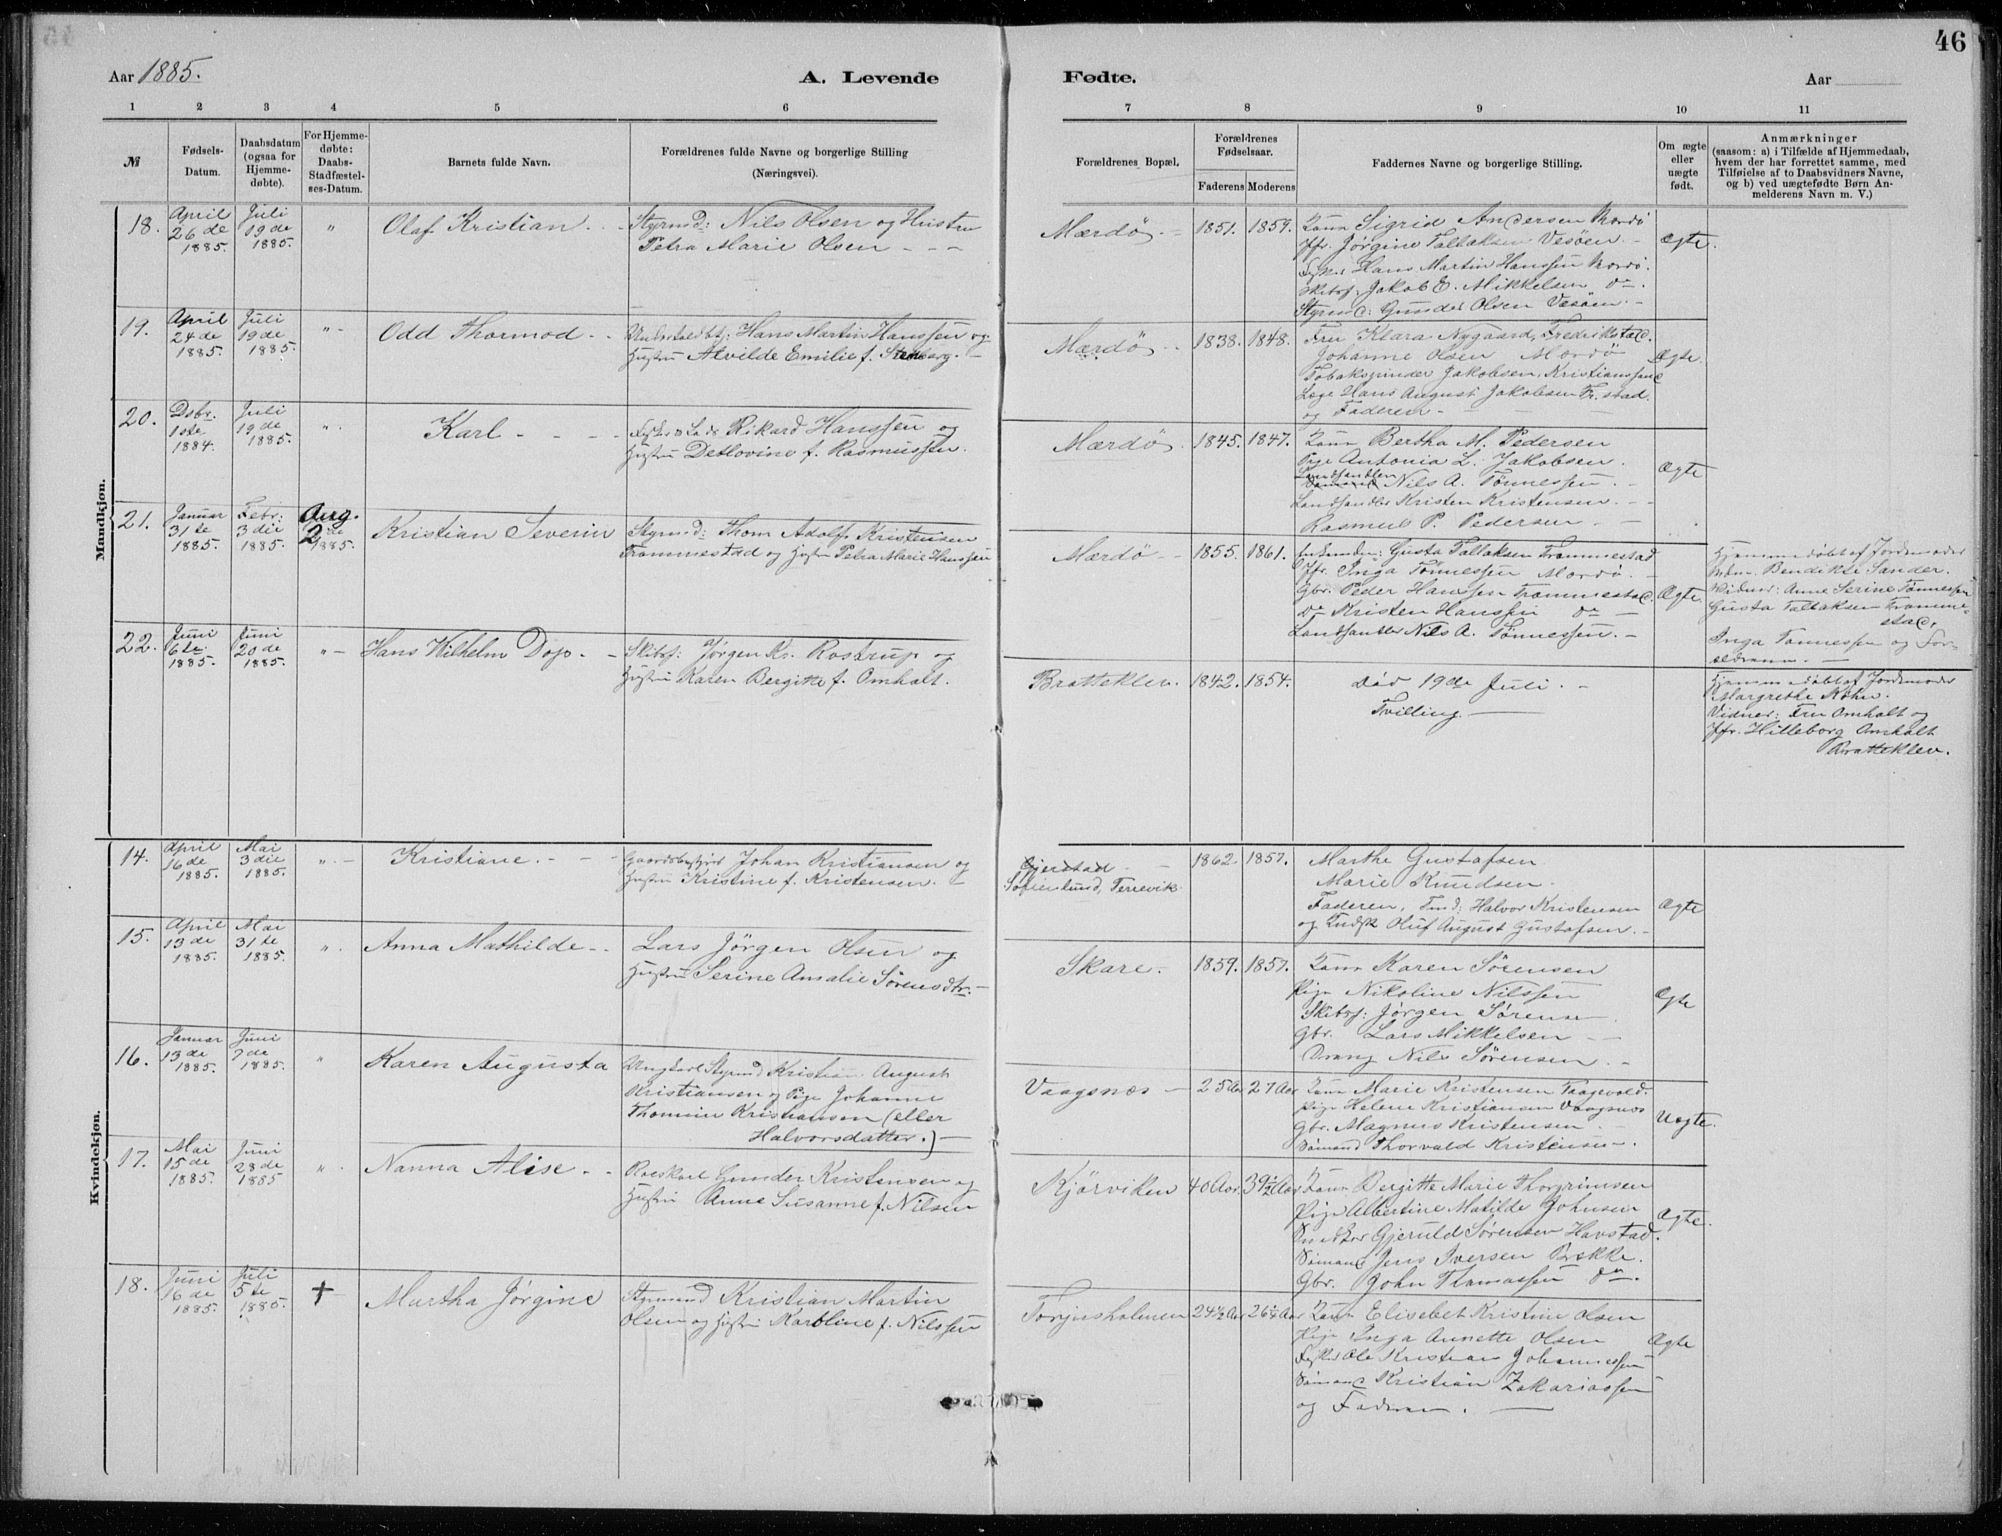 46
Aar 1885.
A. Levende
Fødte.
Aar
1 2 3 4 5 6 7 8 9 10 11
№
Fødsels-
Datum.
Daabsdatum
(ogsaa for
Hjemme-
døbte).
For Hjemme-
døbte:
Daabs-
Stadfæstel-
ses-Datum.
Barnets fulde Navn.
Forældrenes fulde Navne og borgerlige Stilling
(Næringsvei).
Forældrenes Bopæl.
Forældrenes
Fødselsaar.
Faderens Moderens
Faddernes Navne og borgerlige Stilling.
Om ægte
eller
uægte
født.
Anmærkninger
(saasom: a) i Tilfælde af Hjemmedaab,
hvem der har forrettet samme, med
Tilføielse af to Daabsvidners Navne,
og b) ved uægtefødte Børn An-
melderens Navn m. V.)
Mandkjøn.
18.
April
26de
1885.
Juli
19de
1885.
"
Olaf Kristian.
Styrmd: Nils Olsen og Hustru
Petra Marie Olsen
Mærdö
1851. 1859.
Sigrid Andersen Mærdö
Jfr. Jörgine Taltaksen Vesöen
Hans Martin Hanssen Mærdö.
Skibsf. Jakob E. Mikkelsen do.
Styrmd: Gunder Olsen Vesöen
Ægte.
19.
April
24de
1885.
Juli
19de
1885.
"
Odd Thormod
Hans Martin Hanssen og
Hustru Alvilde Emilie f. Stenberg.
Mærdö
1838. 1848.
Fru Klara Nygaard, Fredrikstad.
Johanne Olsen Mærdö
Tobakspinder Jakobsen, Kristianssand
Læge Hans August Jakobsen Fr.stad
og Faderen
Ægte.
20.
Dsbr.
1ste
1884.
Juli
19de
1885.
"
Karl
Rikard Hanssen og
Hustru Detlovine f. Rasmussen.
Mærdö
1845. 1847.
Bertha M. Pedersen
Pige Antonia L. Jakobsen.
Landhandler
Nils A. Tönnessen.
Landhandler Kristen Kristensen.
Rasmus P. Pedersen
Ægte
21.
Januar
31te
1885.
Febr:
3die
1885.
Aug.
2den
1885.
Kristian Severin
Styrmd: Thom Adolf Kristensen
Trommestad og Hustru Petra Marie Hanssen
Mærdö
1855. 1861.
Gusta Taltaksen Trommestad
Jfr. Inga Tönnessen Mærdö.
Gbr. Peder Hanssen Trommestad.
Do Kristen Hanssen do
Landhandler Nils A. Tönnessen.
Ægte.
Hjemmedöbt af Jordemoder
Bendikte Sander.
Vidner: Anne Serine Tönnessen
Gusta Taltaksen Tromme-
stad,
Inga Tönnessen og For-
ældrene.
22.
Juni
6te
1885.
Juni
20de
1885.
"
Hans Wilhelm Dop.
Skibsf: Jörgen Kr. Rostrup og
Hustru Karen Bergitte f. Omholt.
Bratteklev.
1842. 1854.
Död 19de Juli.
Tvilling.
Hjemmedöbt af Jordemoder
MargretheKöhn.
Vidner: Fru Omholt og
Jfr. Hilleborg Omholt
Bratteklev.
Kvindekjøn.
14.
April
16de
1885.
Mai
3die
1885.
"
Kristiane.
Johan Kristiansen og
Hustru Kristine f. Kristensen.
Gjerstad
Sofienlund, Terrevik
1862. 1857.
Marthe Gustafsen
Marie Knudsen.
Faderen, Halvor Kristensen
og Oluf August Gustafsen.
Ægte
15.
April
13de
1885.
Mai
31te
1885.
"
Anna Mathilde
Lars Jörgen Olsen og
Hustru Serine Amalie Sörensdtr.
Skare.
1859. 1857.
Karen Sörensen
Pige Nikoline Nilssen
Skibsf: Jörgen Sörensen
Gbr. Lars Mikkelsen
Dreng Nils Sörensen.
Ægte
16.
Januar
13de
1885.
Juni
7de
1885.
"
Karen Augusta
Ungkarl Styrmd Kristian August
Kristiansen og Pige Johanne
Thomine Kristiansen (eller
Halvorsdatter.)
Vaagsnæs
25 Aar 27 Aar
Marie Kristensen Faagevold.
Pige Helene Kristiansen Vaagsnæs
Gbr. Magnus Kristensen
Sömand Thorvald Kristensen.
Uægte.
17.
Mai
15de
1885.
Juni
28de
1885
"
Nanna Alise
Gunder Kristensen og
Hustru Anne Susanne f. Nilsen
Kjörviken
40 Aar. 39½ Aar
Bergitte Marie Thorgrimsen
Pige Albertine Matilde Johnsen
Gjeruld Sörensen Havstad.
Sömand Jens Iversen Brække.
Gbr. John Thomassen do.
Ægte.
18.
Juni
16de
1885.
Juli
5te
1885.
+
Martha Jörgine
Styrmand Kristian Martin
Olsen og Hustru Karoline f. Nilssen
Torjusholmen
24½ Aar 26¼ Aar
Elisebet Kristine Olsen
Pige Inga Annette Olsen
Fisker Ole Kristian Johannessen
Sömand Kristian Zakariassen
og Faderen.
Ægte